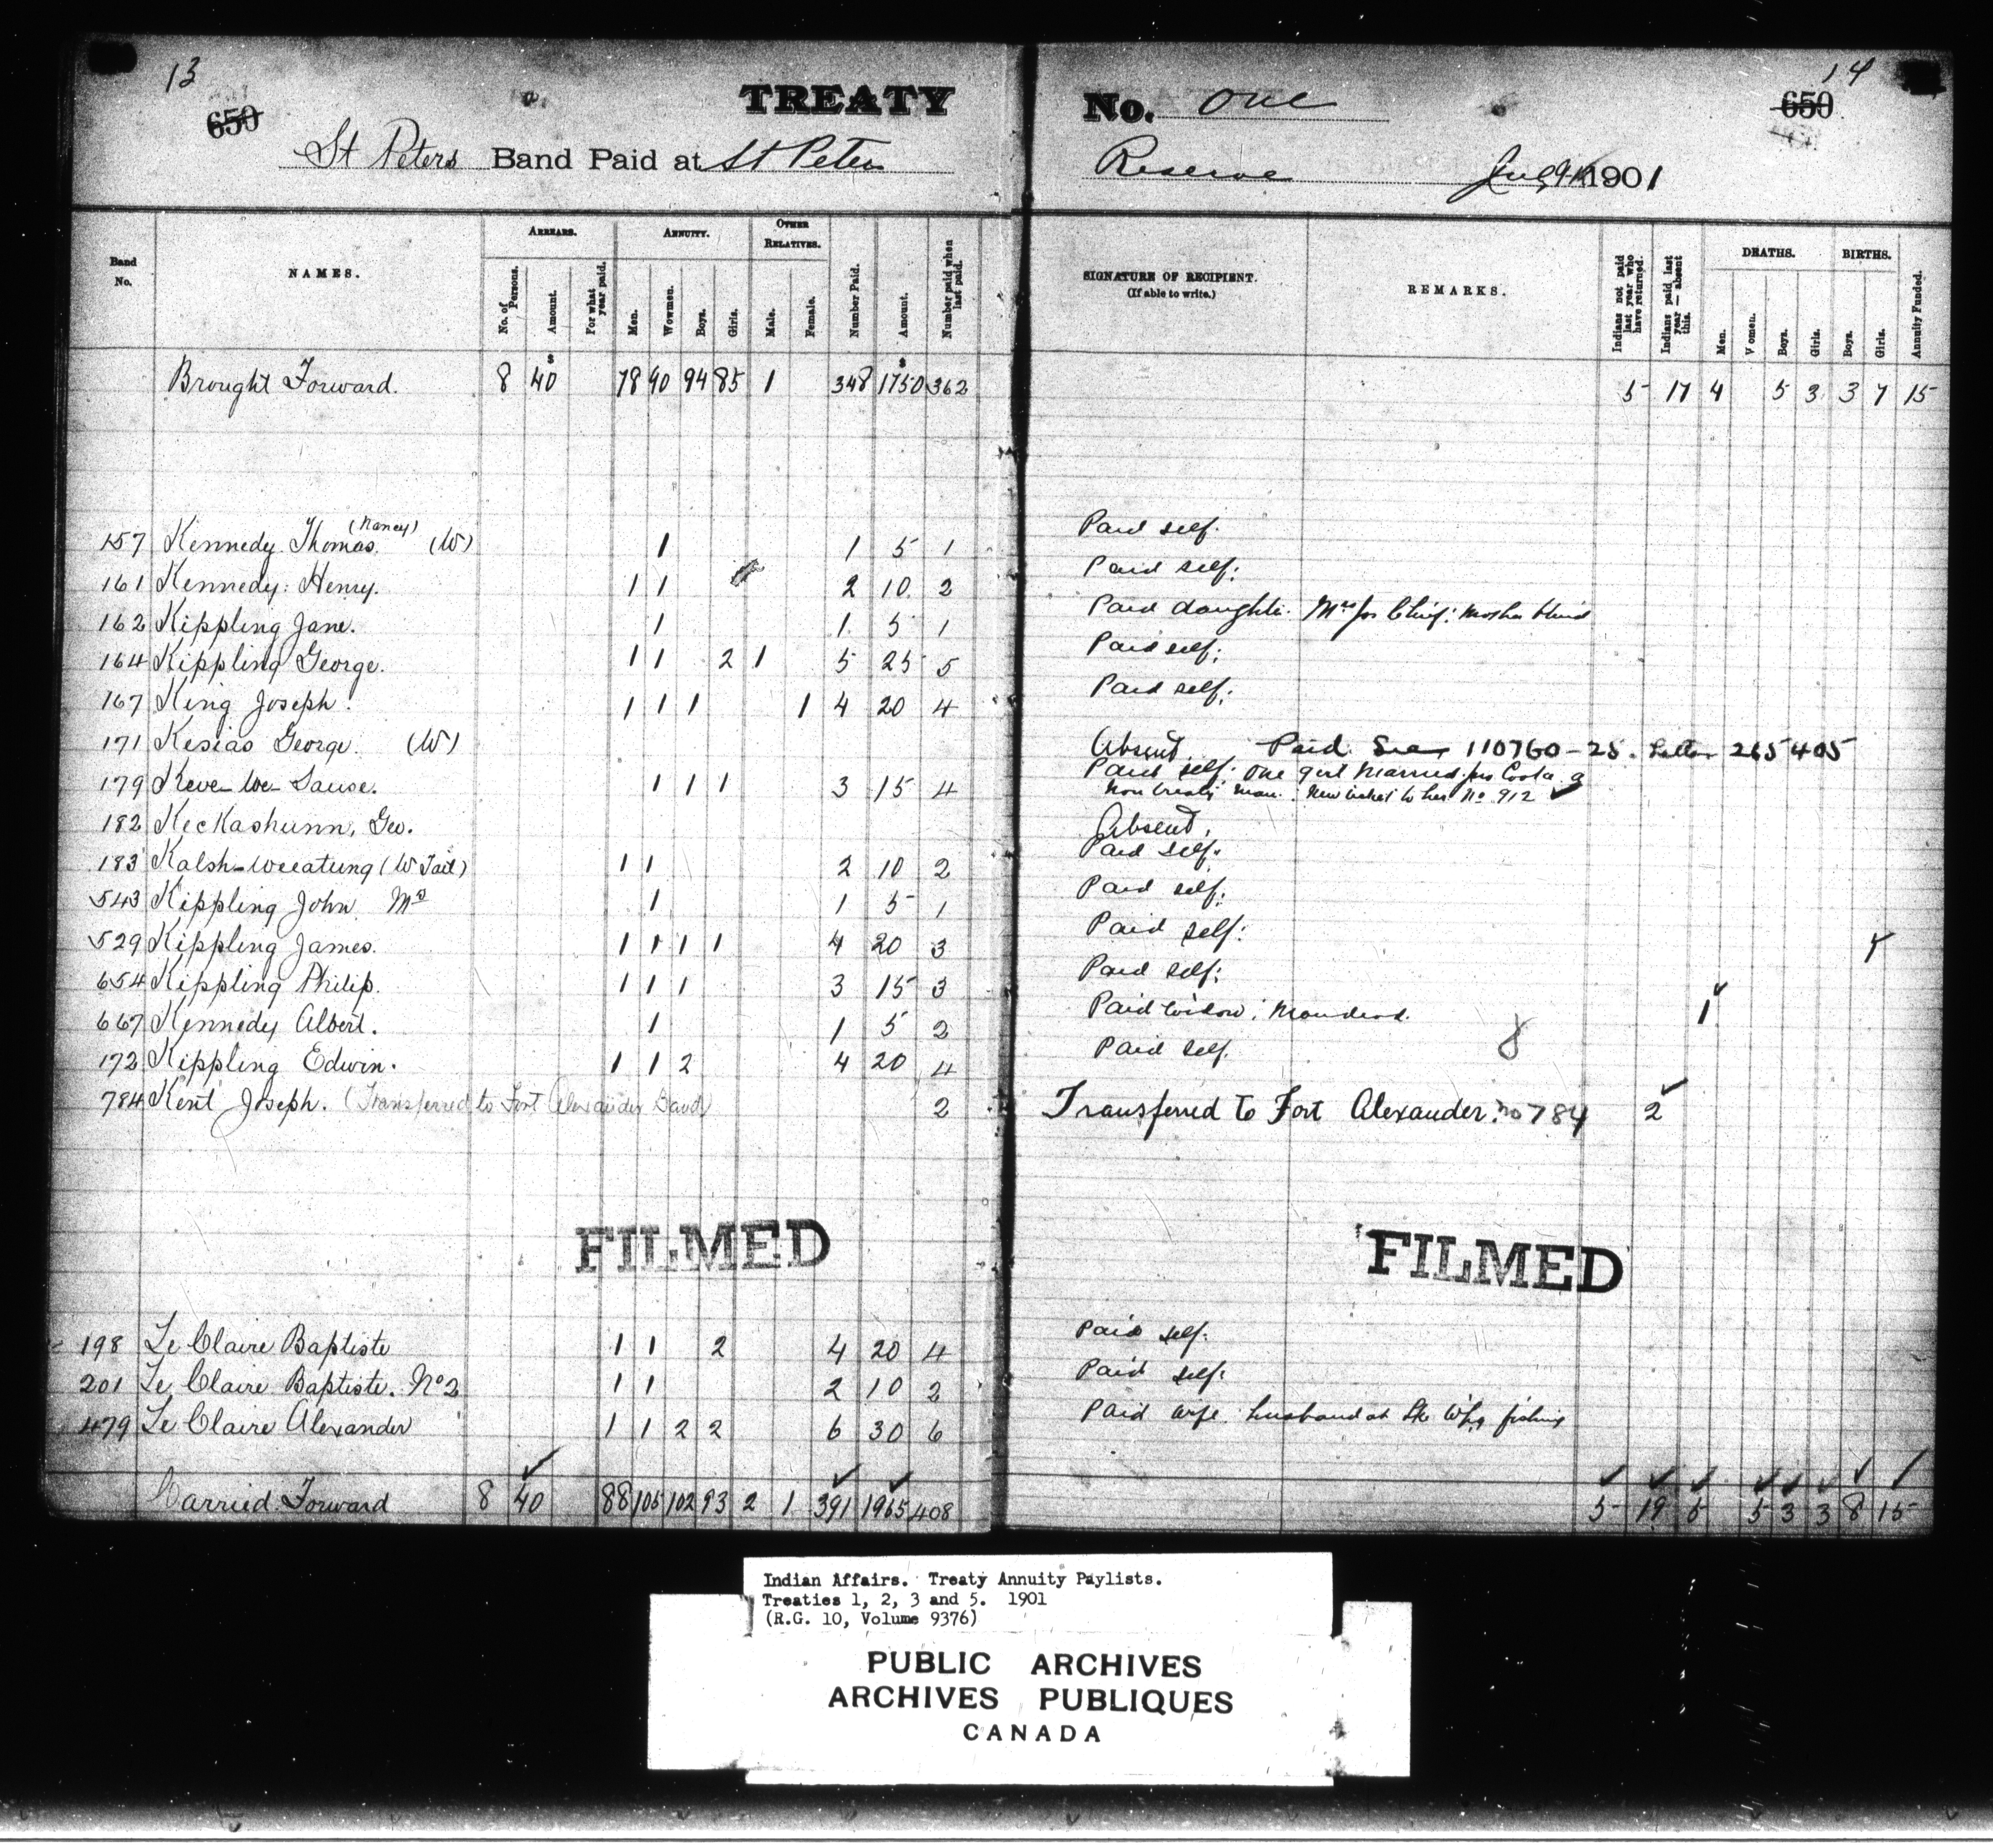 13
14
650
650
TREATY No. One
St Peters Band Paid at St Peters Reserve 1901
Band No.
NAMES.
ARREARS.
No. of Persons.
Amount.
For what year paid.
ANNUITY.
Men.
Women.
Boys.
Girls.
OTHER RELATIVES.
Male.
Female.
Number Paid.
Amount.
Number paid when last paid.
SIGNATURE OF RECIPIENT.
(If able to write.)
REMARKS.
Indians not paid last year who have returned.
Indians paid last year — absent this.
DEATHS.
Men.
Women.
Boys.
Girls.
BIRTHS.
Boys.
Girls.
Annuity Funded.
$ $
Brought Forward. 8 40 78 90 94 85 1 348 1750 362 5 17 4 5 3 3 7 15
(Nancy)
157 Kennedy Thomas. (W) 1 1 5 1 Paid self.
161 Kennedy: Henry. 1 1 2 10 2 Paid self.
162 Kippling Jane. 1 1 5 1 Paid daughter. Mrs
164 Kippling George. 1 1 2 1 5 25 5 Paid self.
167 King Joseph. 1 1 1 1 4 20 4 Paid self.
171 Kesias George. (W) Absent Paid 110760-25. Letter 265405
179 Keve-we-Sause. 1 1 1 3 15 4 Paid self. One girl married
Non treaty man. New ticket to her No 912
182 Keckashunn, Geo. Absent.
183 Kalsh-weeatung (W Tail) 1 1 2 10 2 Paid self.
543 Kippling John Mrs 1 1 5 1 Paid self.
529 Kippling James. 1 1 1 1 4 20 3 Paid self. 1
654 Kippling Philip. 1 1 1 3 15 3 Paid self.
667 Kennedy Albert. 1 1 5 2 Paid widow: Man dead. 1
172 Kippling Edwin. 1 1 2 4 20 4 Paid self. 8
784 Kent Joseph. (Transferred to Fort Alexander Band) 2 Transferred to Fort Alexander. No 784 2
FILMED
FILMED
198 Le Claire Baptiste 1 1 2 4 20 4 Paid self.
201 Le Claire Baptiste. No 2 1 1 2 10 2 Paid self.
479 Le Claire Alexander 1 1 2 2 6 30 6 Paid wife. husband at Lk Wpg fishing
Carried Forward 8 40 88 105 102 93 2 1 391 1965 408 5 19 5 5 3 3 8 15
Indian Affairs. Treaty Annuity Paylists.
Treaties 1, 2, 3 and 5. 1901
(R.G. 10, Volume 9376)
PUBLIC ARCHIVES
ARCHIVES PUBLIQUES
CANADA